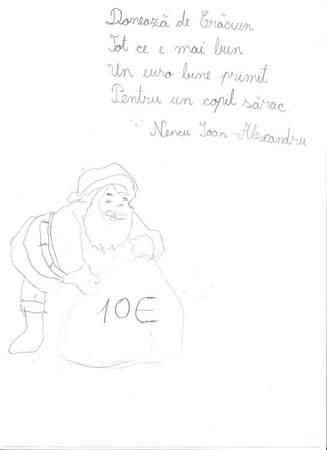 Donează de Crăciun
Tot ce e mai bun
Un euro bine primit
Pentru un copil sărac
Nencu Ioan-Alexandru
10E